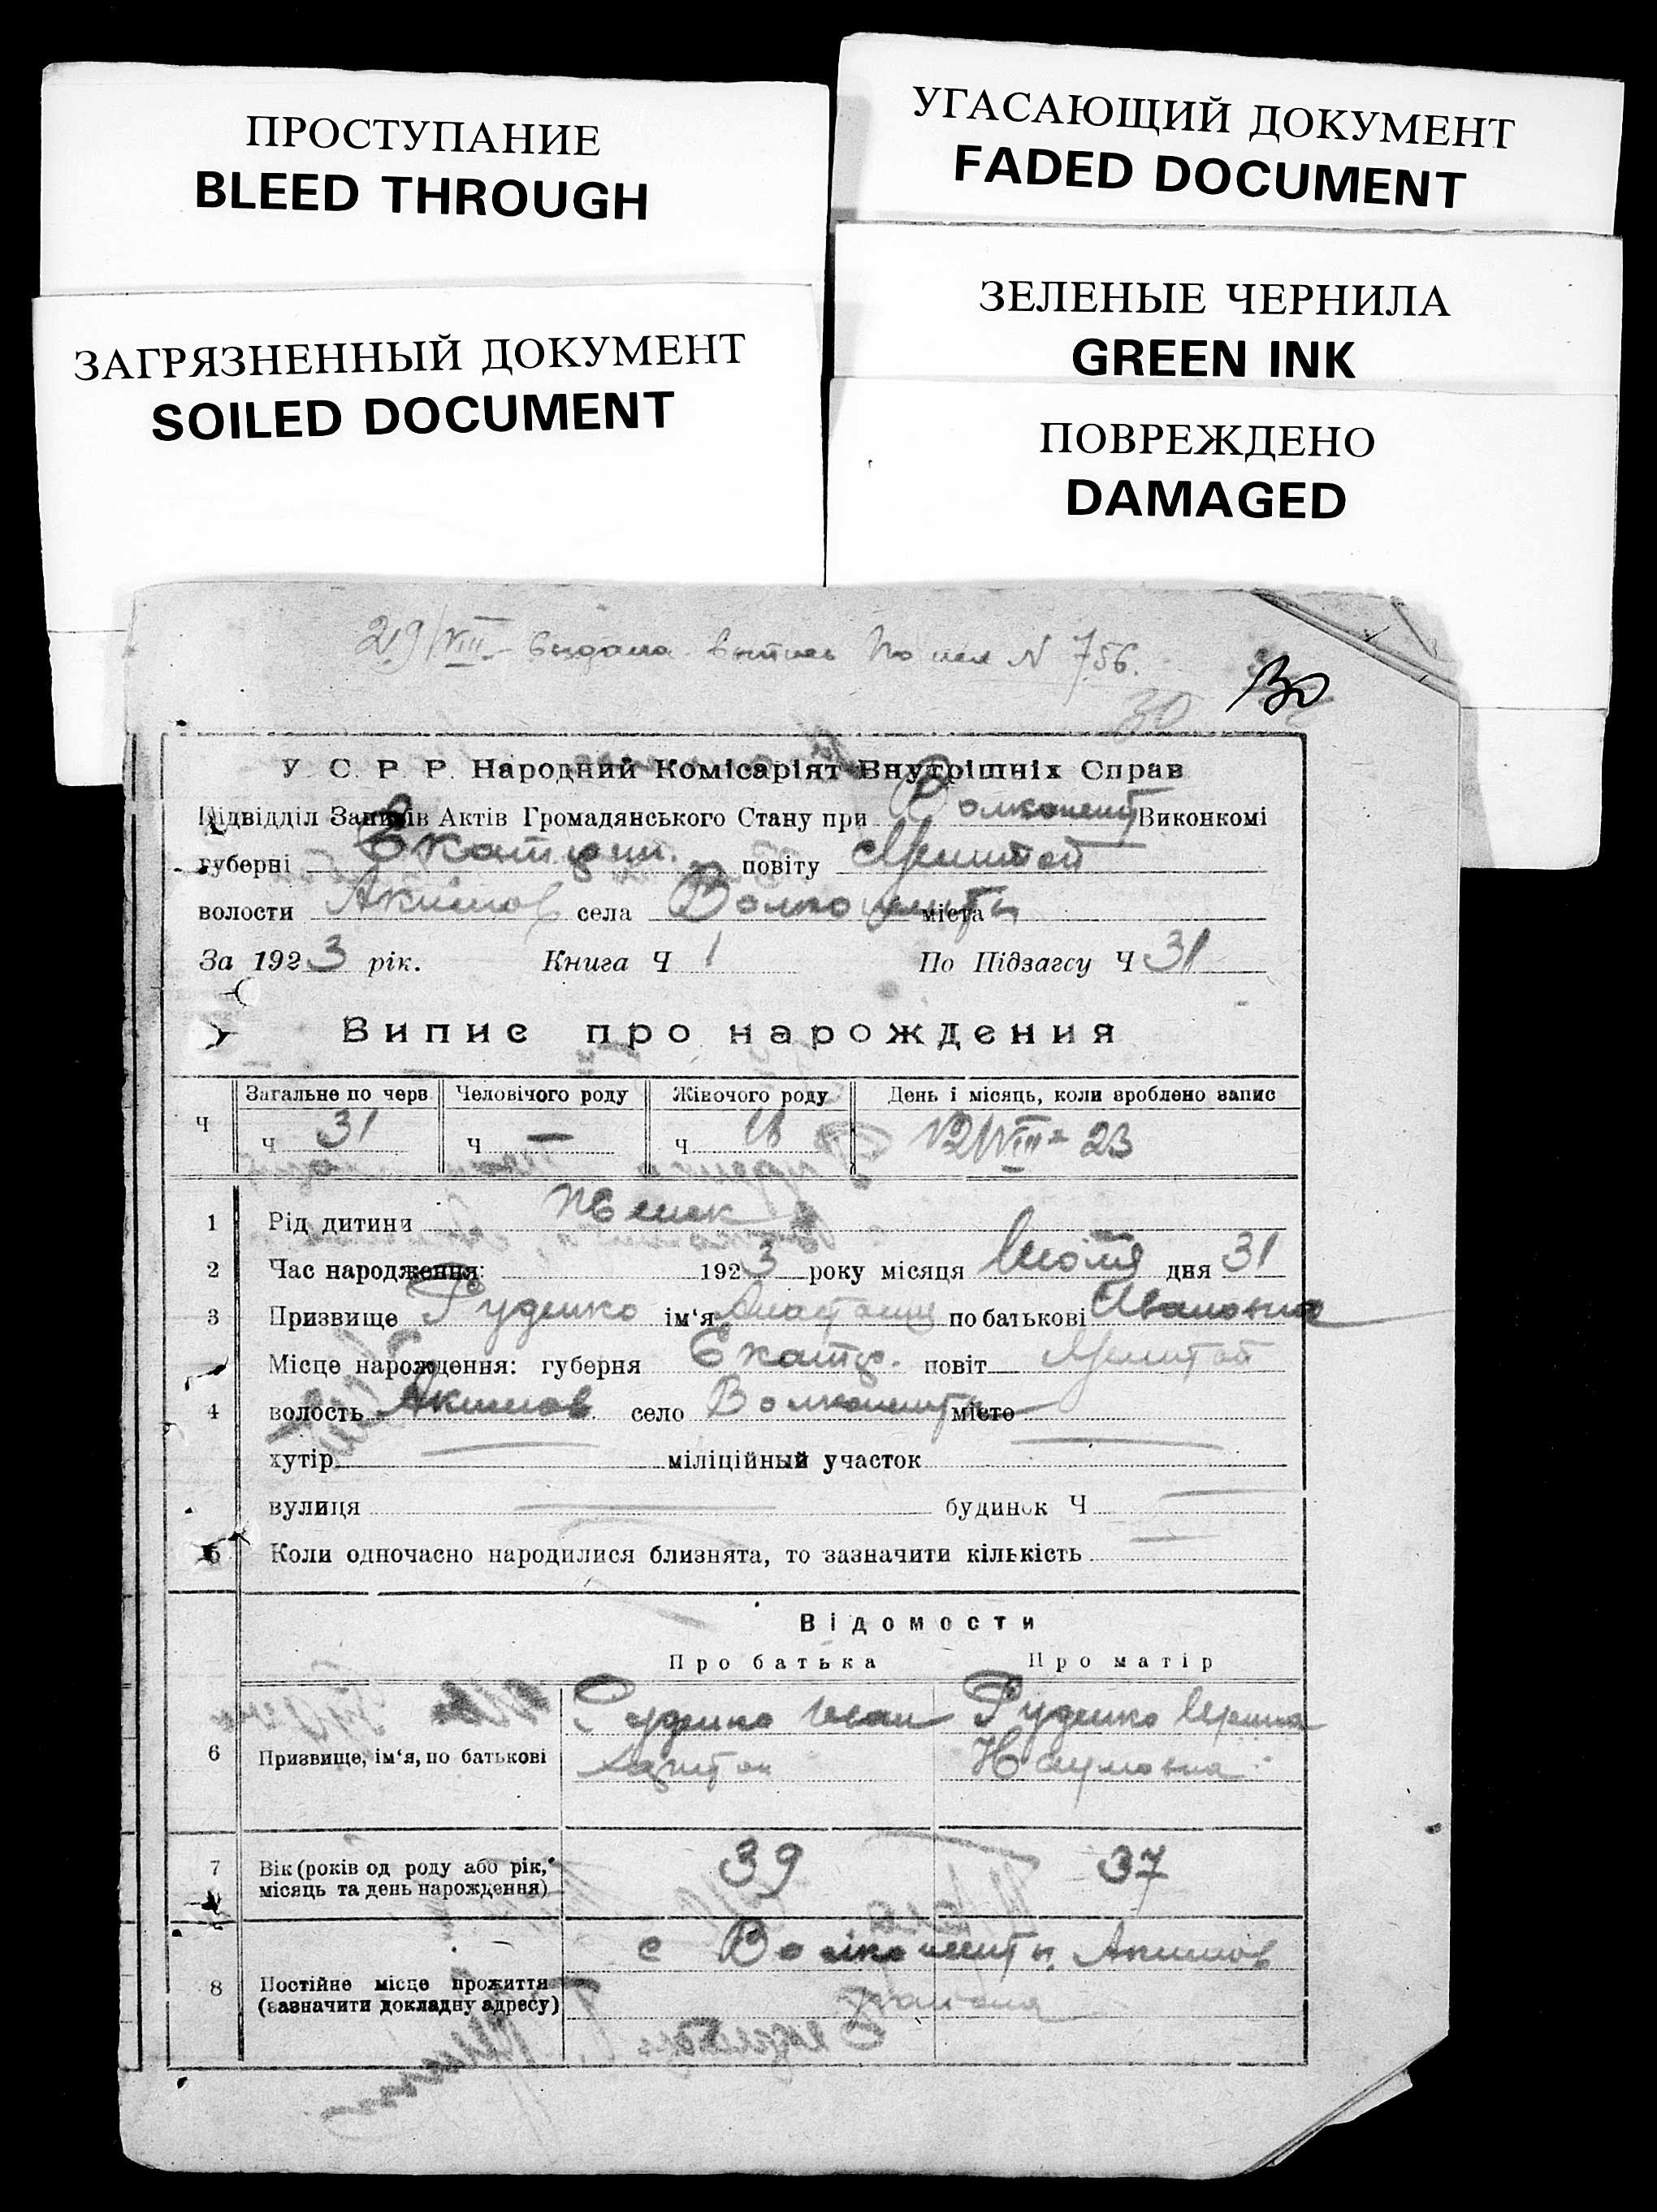 ПРОСТУПАНИЕ
BLEED THROUGH
ЗАГРЯЗНЕННЫЙ ДОКУМЕНТ
SOILED DOCUMENT
УГАСАЮЩИЙ ДОКУМЕНТ
FADED DOCUMENT
ЗЕЛЕНЫЕ ЧЕРНИЛА
GREEN INK
ПОВРЕЖДЕНО
DAMAGED
29/VIII N 756.
30 30
У. С. Р. Р. Народний Комісаріят Внутрішніх Справ
Підвідділ Записів Актів Громадянського Стану при Виконкомі
губерні повіту
волости Акимов села міста
За 1923 рік. Книга Ч 1 По Підзагсу Ч 31
Випис про нарождения
Загальне по черв Человічого роду Жіночого роду День і місяць, коли вроблено запис
Ч Ч 31 Ч — Ч 18 12/VIII-23
1 Рід дитини Женск
2 Час народження: 1923 року місяця Июля дня 31
3 Призвище Руденко ім'я Анастасия по батькові Ивановна
Місце нарождения: губерня Екатер. повіт
4 волость Акимов село місто
хутір міліційный участок
вулиця будинок Ч
5 Коли одночасно народилися близнята, то зазначити кількість
Відомости
Про батька Про матір
6 Призвище, ім'я, по батькові Руденко Иван Руденко Ирина
Харитон Наумовна
7 Вік (років од роду або рік, місяць та день нарождения) 39 37
8 Постійне місце прожиття (зазначити докладну адресу) с Акимов